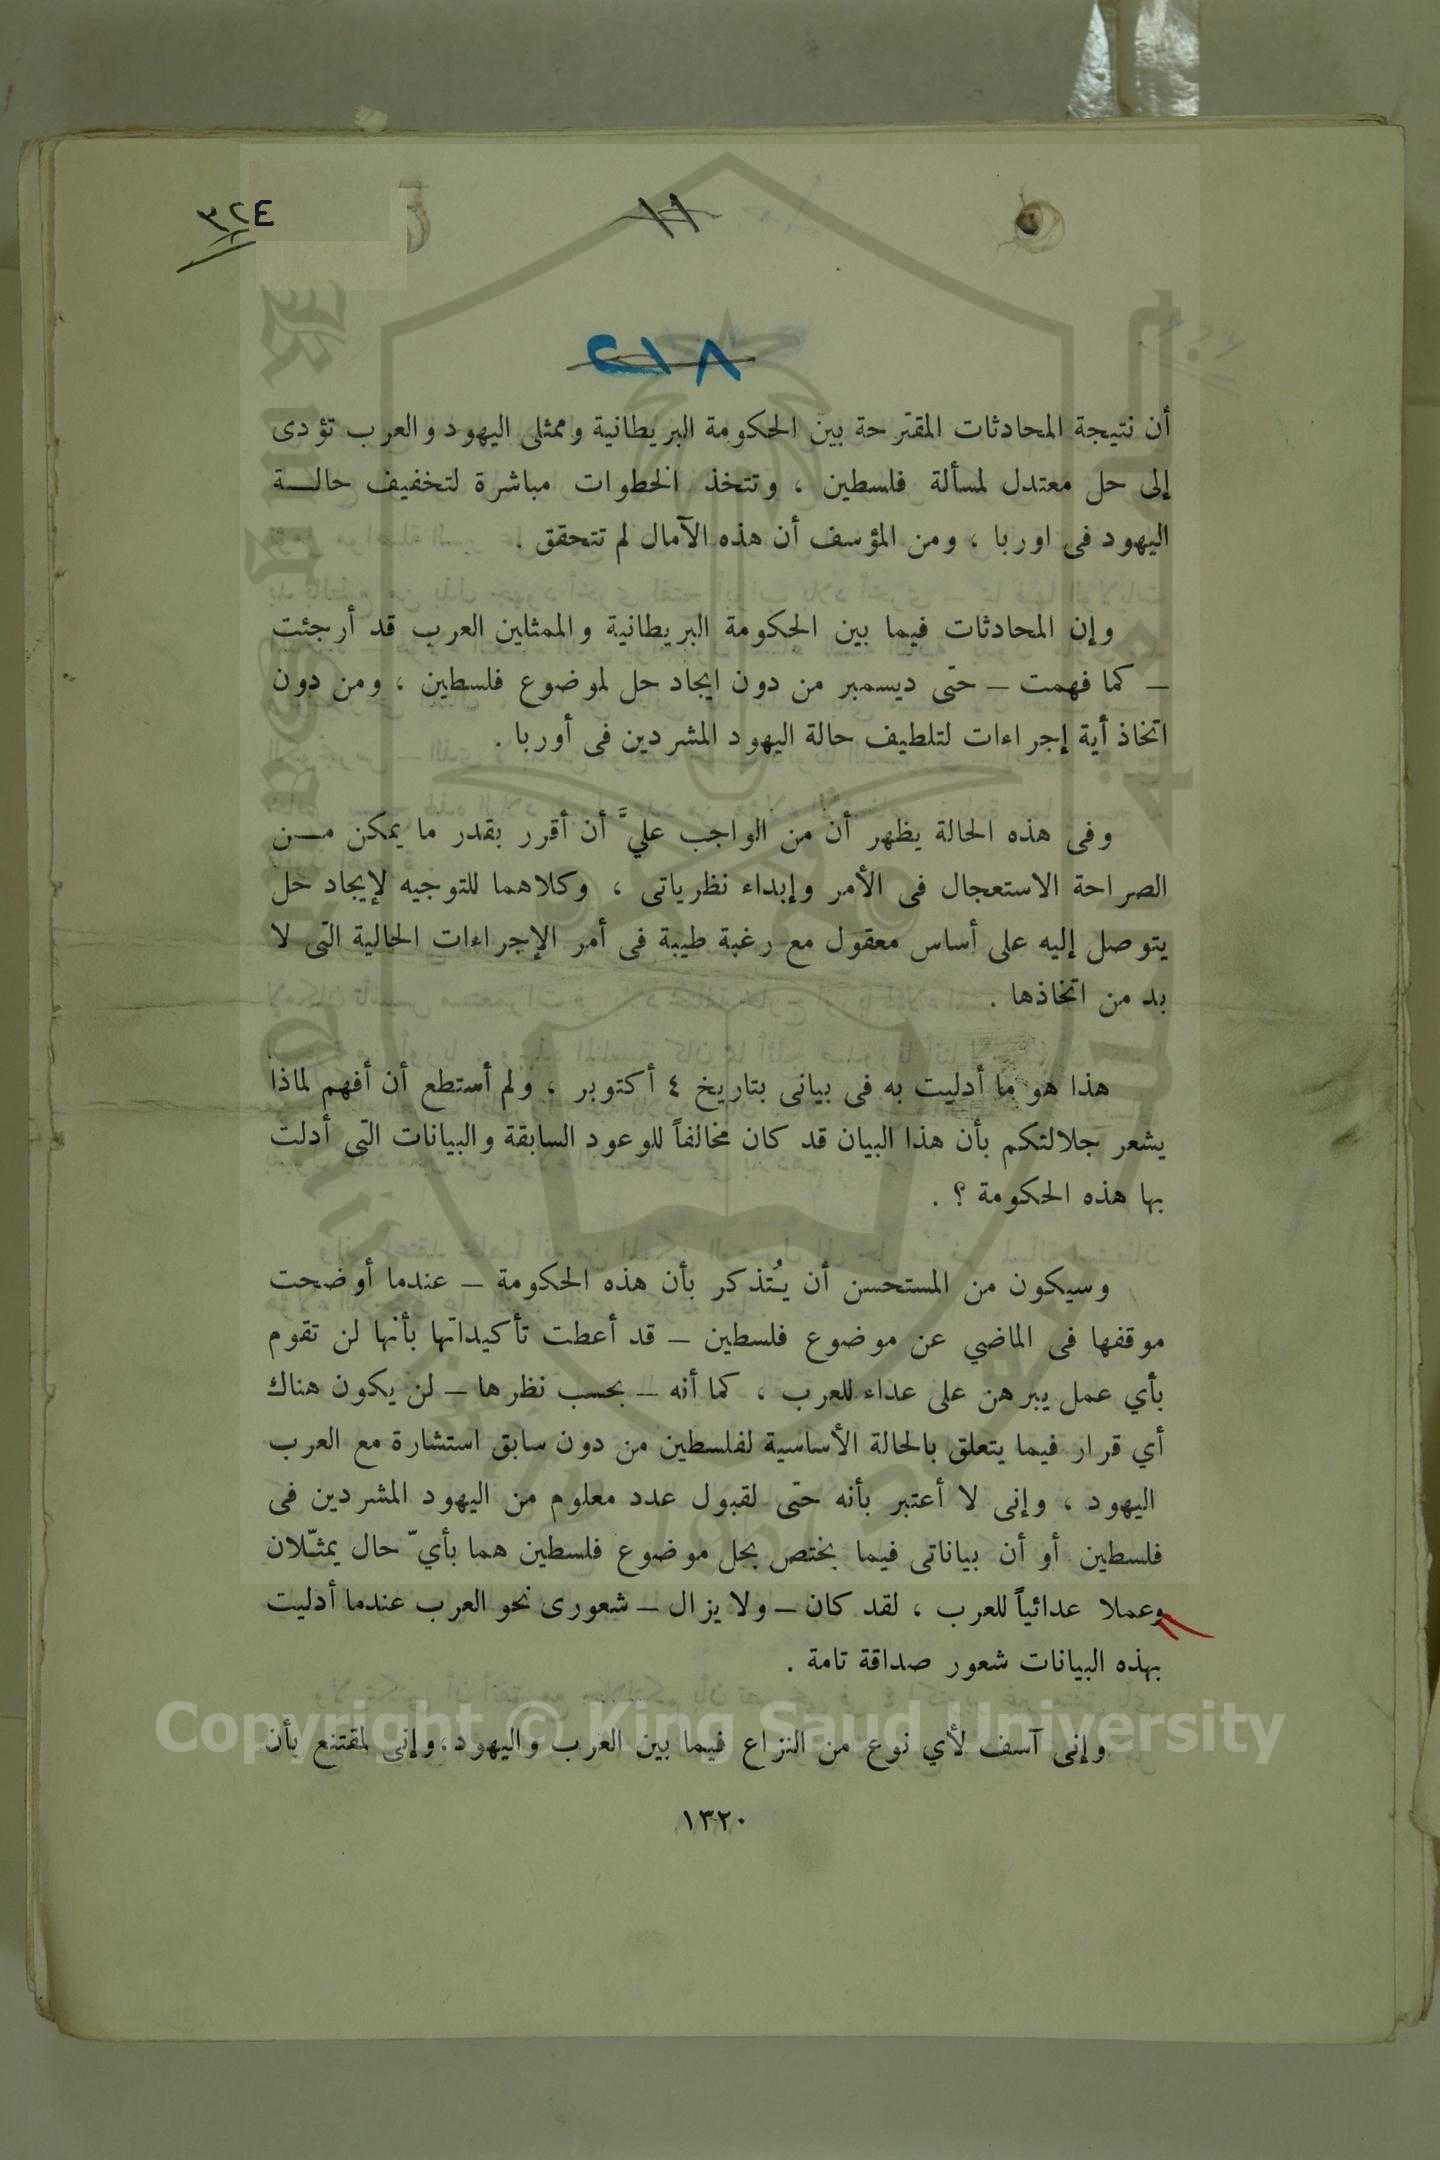 ٣٢٤
١١
٢١٨
أن نتيجة المحادثات المقترحة بين الحكومة البريطانية وممثلى اليهود والعرب تؤدى
إلى حل معتدل لمسألة فلسطين ، وتتخذ الخطوات مباشرة لتخفيف حالـــة
اليهود فى اوربا ، ومن المؤسف أن هذه الآمال لم تتحقق .
وإن المحادثات فيما بين الحكومة البريطانية والممثلين العرب قد أرجئت
– كما فهمت – حتى ديسمبر من دون ايجاد حل لموضوع فلسطين ، ومن دون
اتخاذ أية إجراءات لتلطيف حالة اليهود المشردين فى أوربا .
وفى هذه الحالة يظهر أن من الواجب عليَّ أن أقرر بقدر ما يمكن مــن
الصراحة الاستعجال فى الأمر وإبداء نظرياتى ، وكلاهما للتوجيه لإيجاد حل
يتوصل إليه على أساس معقول مع رغبة طيبة فى أمر الإجراءات الحالية التى لا
بد من اتخاذها .
هذا هو ما أدليت به فى بيانى بتاريخ ٤ أكتوبر ، ولم أستطع أن أفهم لماذا
يشعر جلالتكم بأن هذا البيان قد كان مخالفاً للوعود السابقة والبيانات التى أدلت
بها هذه الحكومة ؟ .
وسيكون من المستحسن أن يُتذكر بأن هذه الحكومة – عندما أوضحت
موقفها فى الماضي عن موضوع فلسطين – قد أعطت تأكيداتها بأنها لن تقوم
بأي عمل يبرهن على عداء للعرب ، كما أنه – بحسب نظرها – لن يكون هناك
أي قرار فيما يتعلق بالحالة الأساسية لفلسطين من دون سابق استشارة مع العرب
اليهود ، وإنى لا أعتبر بأنه حتى لقبول عدد معلوم من اليهود المشردين فى
فلسطين أو أن بياناتى فيما يختص بحل موضوع فلسطين هما بأيّ حال يمثّلان
وعملا عدائياً للعرب ، لقد كان – ولا يزال – شعورى نحو العرب عندما أدليت
بهذه البيانات شعور صداقة تامة .
وإنى آسف لأي نوع من النزاع فيما بين العرب واليهود،وإنى لمقتنع بأن
Copyright © King Saud University
١٣٢٠